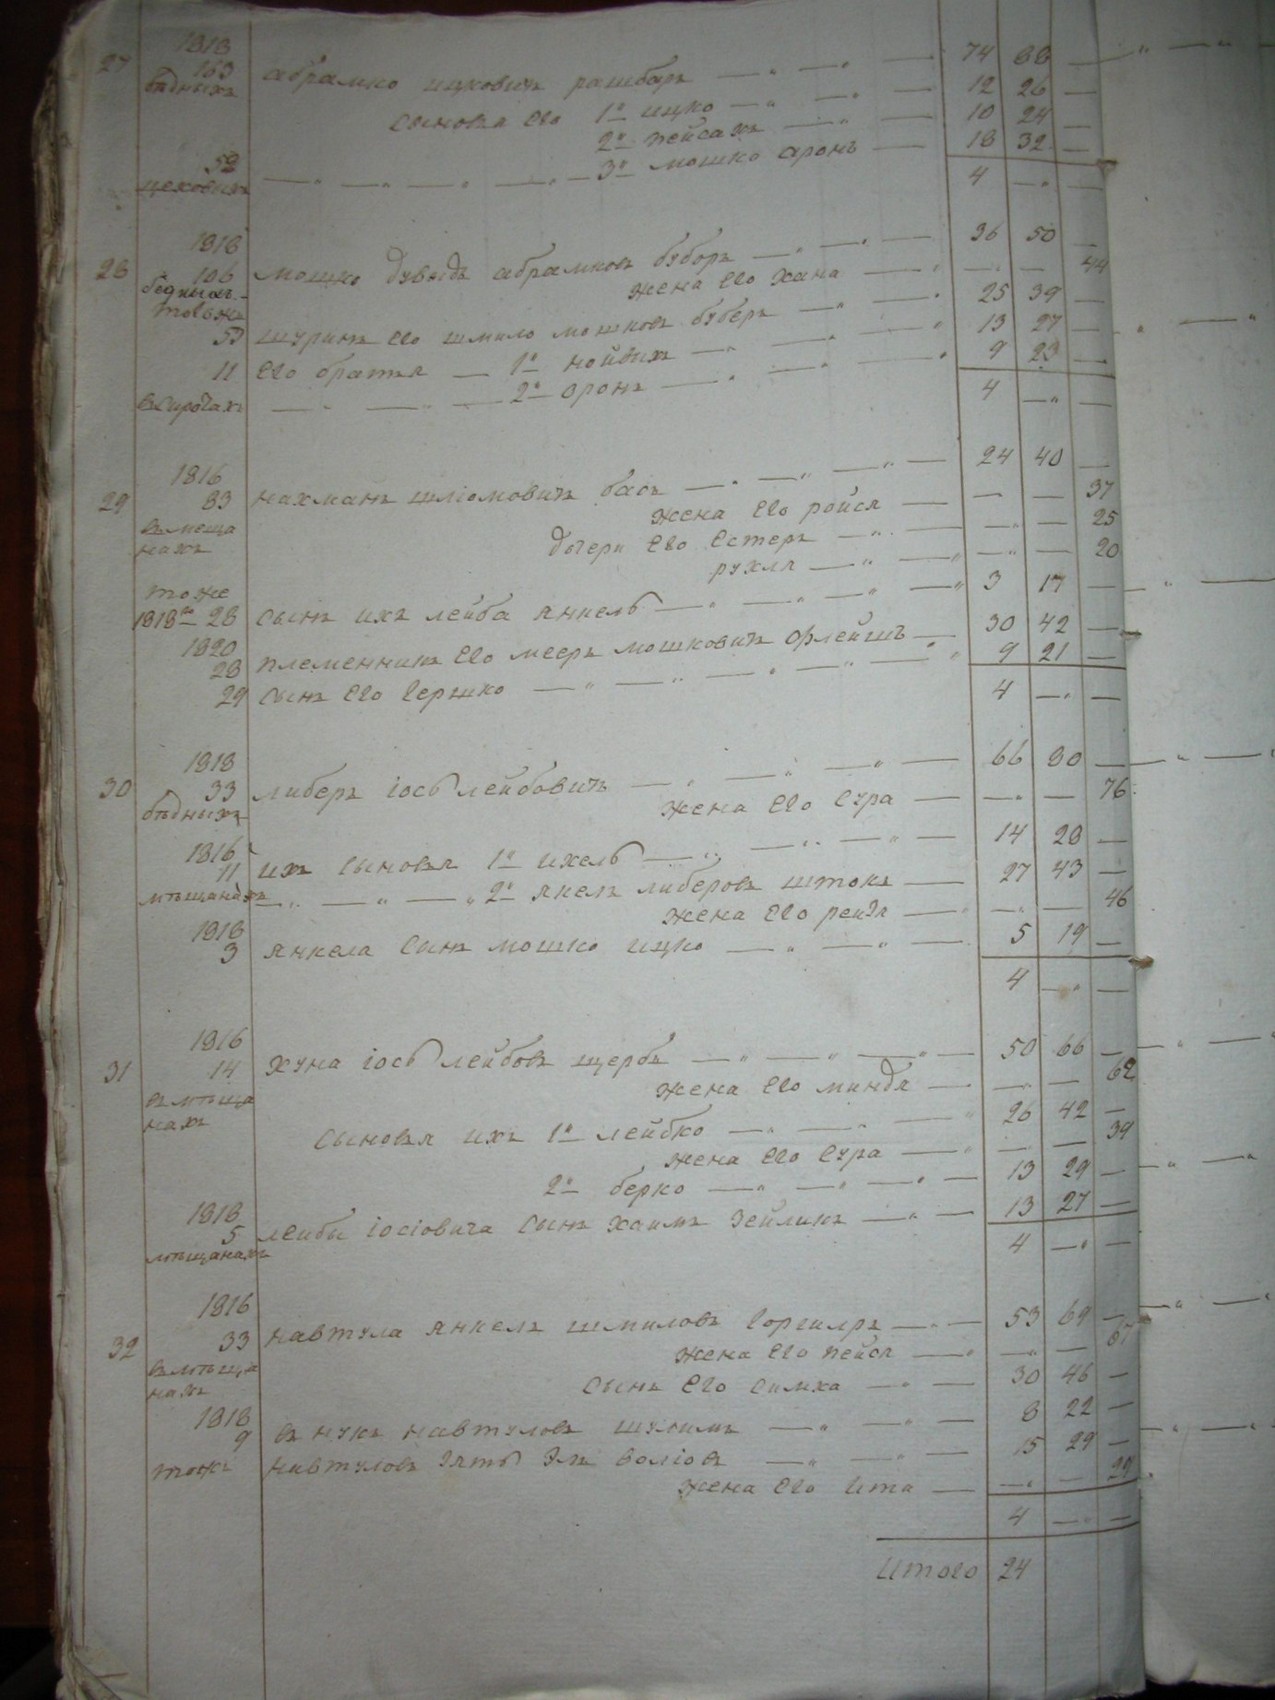 1818
27 163 абрамко ицковичъ рашбаръ — „ — „ — 74 88 —
бѣдныхъ
сыновья его 1й ицко — „ — „ — 12 26 —
2й пейсахъ — „ — 10 24 —
59 3й мошко аронъ — 18 32 —
цеховыхъ 4 — „ —
1818
28 106 мошко дувидъ абрамковъ буборъ — „ — „ — 36 50 —
бедныхъ жена его хана — „ — „ — 44
тоъже
53 шуринъ его шмило мошковъ буберъ — „ — „ 25 39 —
11 его братья — 1й нойвихъ — „ — „ 13 27 —
2й оронъ — „ — „ 9 23 —
в сиротахъ 4 — „ —
1816
29 83 нахманъ шліомовичъ басъ — „ — „ — 24 40 —
въ меща жена его ройся — — — 37
нахъ дочери его естеръ — „ — — „ — 25
рухля — „ — „ — „ — 20
тоже
1818го 28 сынъ ихъ лейба янкель — „ — „ — „ 3 17 —
1820
28 племенникъ его мееръ мошковичъ орлейшъ — 30 42 —
29 сынъ его гершко — „ — „ — „ 9 21 —
4 — „ —
1818
30 33 либеръ іось лейбовичъ — „ — „ — „ — 66 80 —
бѣдныхъ жена его сура — — „ — 76
1816
11 ихъ сыновья 1й ихель — „ — „ — „ — 14 28 —
мѣщанахъ — „ — „ — „ 2й якелъ либеровъ штокъ — 27 43 —
жена его рейзя — — „ — 46
1818
3 янкела сынъ мошко ицко — „ — „ — 5 19 —
4 — „ —
1816
31 14 хуна іось лейбовъ щербъ — „ — „ — „ — 50 66 —
жена его миндля — — „ — 62
въ мѣща
нахъ сыновья ихъ 1й лейбко — „ — „ — „ 26 42 —
жена его сура — „ — — 39
2й берко — „ — „ — „ — 13 29 —
1818
5 лейбы іосіовича сынъ хаимъ зейликъ — „ — 13 27 —
мѣщанахъ 4 — „ —
1816
32 33 навтула янкелъ шмиловъ горгиляръ — „ — 53 69 —
въ мѣща жена его пейся — „ — „ — 67
нахъ сынъ его симха — „ — 30 46 —
1818
9 внукъ навтуловъ шулимъ — „ — „ — 8 22 —
тожъ навтуловъ зять эль волговъ — „ — „ — 15 29 —
жена его ита — — „ — 29
4 — „ —
Итого 24